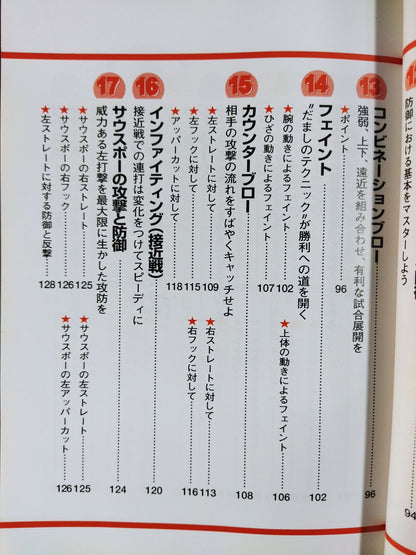 防御における基本をマスターしよう
94
13 コンビネーションブロー
強弱、上下、遠近を組み合わせ、有利な試合展開を 96
★ポイント 96
14 フェイント
“だましのテクニック”が勝利への道を開く 102
★腕の動きによるフェイント 102 ★上体の動きによるフェイント 106
★ひざの動きによるフェイント 107
15 カウンターブロー
相手の攻撃の流れをすばやくキャッチせよ 108
★左ストレートに対して 109 ★右ストレートに対して 113
★左フックに対して 115 ★右フックに対して 116
★アッパーカットに対して 118
16 インファイティング(接近戦)
接近戦での連打は変化をつけてスピーディに 120
17 サウスポーの攻撃と防御
威力ある左打撃を最大限に生かした攻防を 124
★サウスポーの右ストレート 125 ★サウスポーの左ストレート 125
★サウスポーの右フック 126 ★サウスポーの左アッパーカット 126
★左ストレートに対する防御と反撃 128